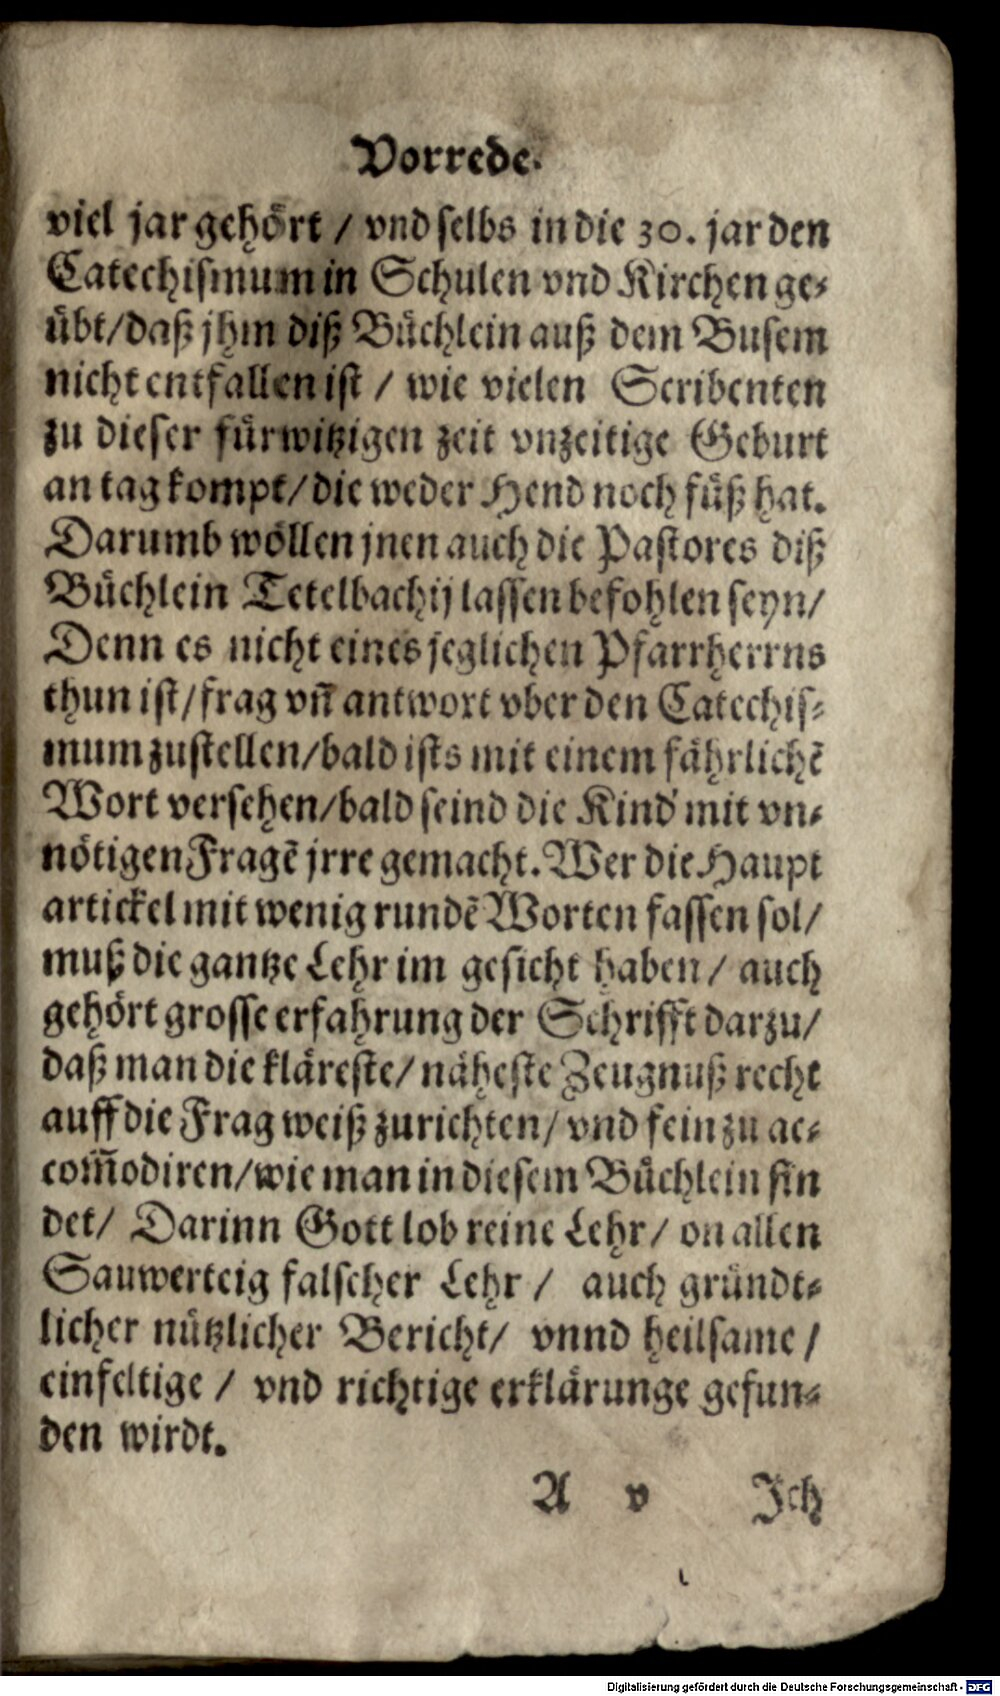 Vorrede.
viel jar gehört / vnd selbs in die 30. jar den
Catechismum in Schulen vnd Kirchen ge-
übt/daß jhm diß Büchlein auß dem Busem
nicht entfallen ist / wie vielen Scribenten
zu dieser fürwitzigen zeit vnzeitige Geburt
an tag kompt/die weder Hend noch füß hat.
Darumb wöllen jnen auch die Pastores diß
Büchlein Tetelbachij lassen befohlen seyn/
Denn es nicht eines jeglichen Pfarrherrns
thun ist/frag vñ antwort vber den Catechis-
mum zustellen/bald ists mit einem fährlichẽ
Wort versehen/bald seind die Kind' mit vn-
nötigen Fragẽ jrre gemacht. Wer die Haupt
artickel mit wenig rundẽ Worten fassen sol/
muß die gantze Lehr im gesicht haben / auch
gehört grosse erfahrung der Schrifft darzu/
daß man die kläreste/näheste Zeugnuß recht
auff die Frag weiß zurichten/vnd fein zu ac-
com̃odiren/wie man in diesem Büchlein fin
det/ Darinn Gott lob reine Lehr/ on allen
Sauwerteig falscher Lehr / auch gründt-
licher nützlicher Bericht/ vnnd heilsame /
einfeltige / vnd richtige erklärunge gefun-
den wirdt.
A v Ich
Digitalisierung gefördert durch die Deutsche Forschungsgemeinschaft - DFG